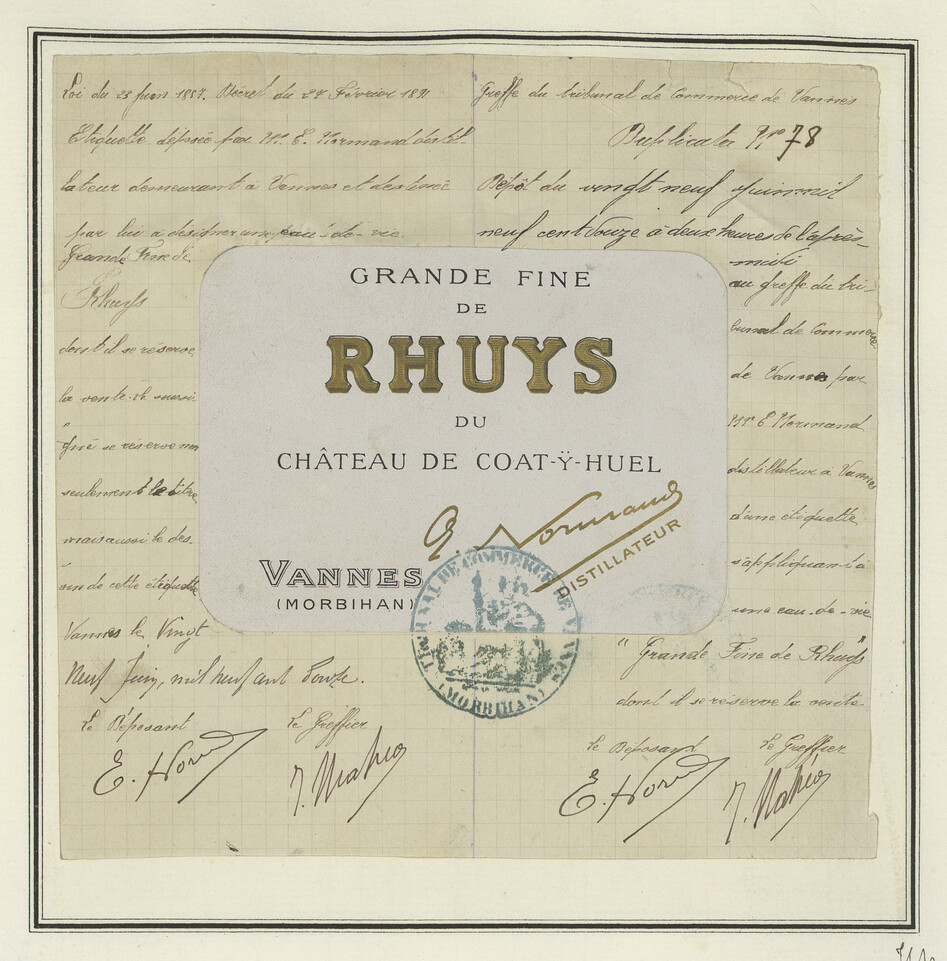 Loi du 23 juin 1857. Décret du 27 Février 1891
Etiquette déposée par Mr. E. Normand distil-
lateur demeurant à Vannes et destinée
par lui a désigner une eau-de-vie
Grande Fine de
Rhuys
dont il se réserve
la vente. le sussi
qué se réserve non
seulement le titre
mais aussi le des-
sin de cette étiquette
Vannes le Vingt
Neuf Juin, mil neuf cent Douze.
Le Déposant Le Greffier
E. Nor J. Mahéo
Greffe du tribunal de Commerce de Vannes
Duplicata No 78
Dépôt du vingt neuf juin mil
neuf cent douze à deux heures de l'après-
midi
au greffe du tri-
bunal de Commerce
de Vannes par
Mr E Normand
distillateur a Vannes
d'une étiquette
s'appliquant à
une eau-de-vie
"Grande Fine de Rhuys"
dont il se réserve la vente
Le Déposant Le Greffier
E. Nor J. Mahéo
GRANDE FINE
DE
RHUYS
DU
CHÂTEAU DE COAT-Ÿ-HUEL
E. Normand
DISTILLATEUR
VANNES
(MORBIHAN)
TRIBUNAL DE COMMERCE DE VANNES
(MORBIHAN)